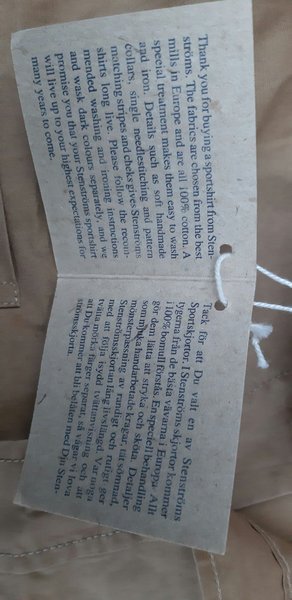 Thank you for buying a sportshirt from Sten-
ströms. The fabrics are chosen from the best
mills in Europe and are all 100% cotton. A
special treatment makes them easy to wash
and iron. Details such as soft handmade
collars, single needlestitching and pattern
matching stripes and cheks gives Stenströms
shirts long live. Please follow the recom-
mended washing and ironing instructions
and wask dark colours separately, and we
promise you that your Stenströms sportshirt
will live up to your highest expectations for
many years to come.
Tack för att Du valt en av Stenströms
Sportskjortor. I Stenströms skjortor kommer
tygerna från de bästa vävarna i Europa. Allt
i 100% bomull förstås. En speciell behandling
gör dem lätta att stryka och sköta. Detaljer
som mjuka handarbetade kragar, tät sömnad,
mönsterpassning av rundigt och rutigt ger
Stenströmsskjortan lång livslängd. Var noga
med att följa isydd tvättanvisning och att
tvätta mörka färger separat, så vågar vi lova
att Du kommer att bli belåten med Din Sten-
strömsskjorta.